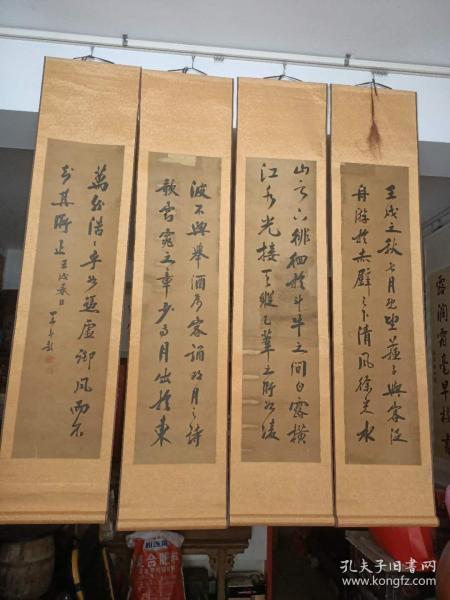 壬戌之秋七月既望蘇子與客泛
舟游於赤壁之下清風徐來水
波不興舉酒屬客誦明月之詩
歌窈窕之章少焉月出於東
山之上徘徊於斗牛之間白露橫
江水光接天縱一葦之所如凌
萬頃浩浩乎如憑虛御風而不
知其所止壬戌春日
复合肥
孔夫子旧书网
www.kongfz.com